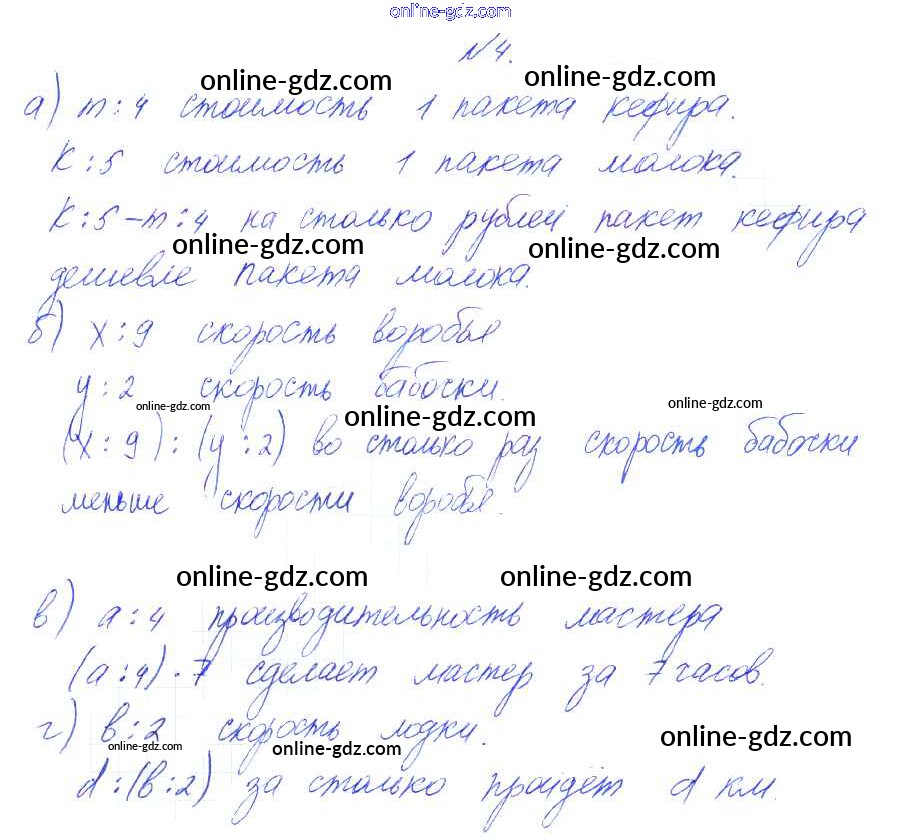 online-gdz.com
№4.
online-gdz.com online-gdz.com
а) m : 4 стоимость 1 пакета кефира.
K : 5 стоимость 1 пакета молока.
K : 5 - m : 4 на столько рублей пакет кефира
online-gdz.com online-gdz.com
дешевле пакета молока.
б) x : 9 скорость воробья
y : 2 скорость бабочки.
online-gdz.com online-gdz.com online-gdz.com
(x : 9) : (y : 2) во столько раз скорость бабочки
меньше скорости воробья.
online-gdz.com online-gdz.com
в) a : 4 производительность мастера
(a : 4) · 7 сделает мастер за 7 часов.
г) b : 2 скорость лодки.
online-gdz.com online-gdz.com online-gdz.com
d : (b : 2) за столько пройдёт d км.